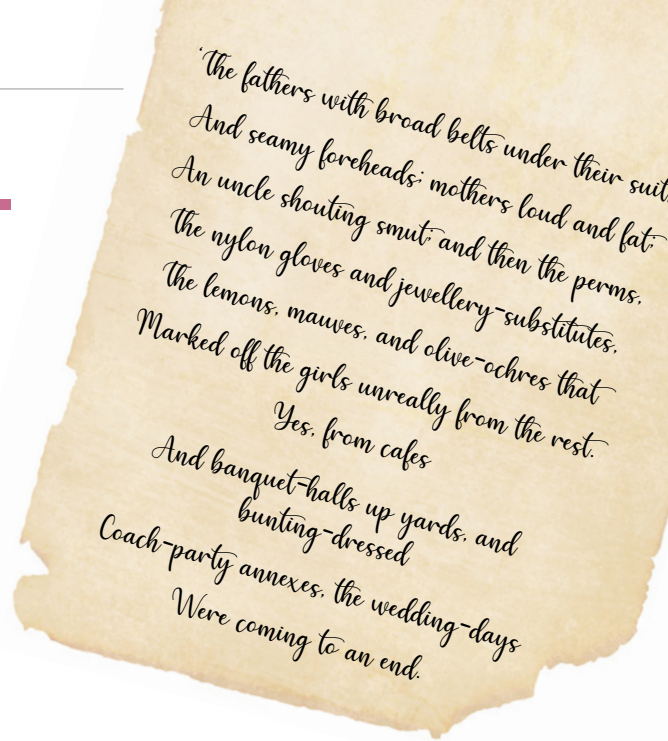 ‘The fathers with broad belts under their suit
And seamy foreheads; mothers loud and fat;
An uncle shouting smut; and then the perms,
The nylon gloves and jewellery-substitutes,
The lemons, mauves, and olive-ochres that
Marked off the girls unreally from the rest.
Yes, from cafes
And banquet-halls up yards, and
bunting-dressed
Coach-party annexes, the wedding-days
Were coming to an end.